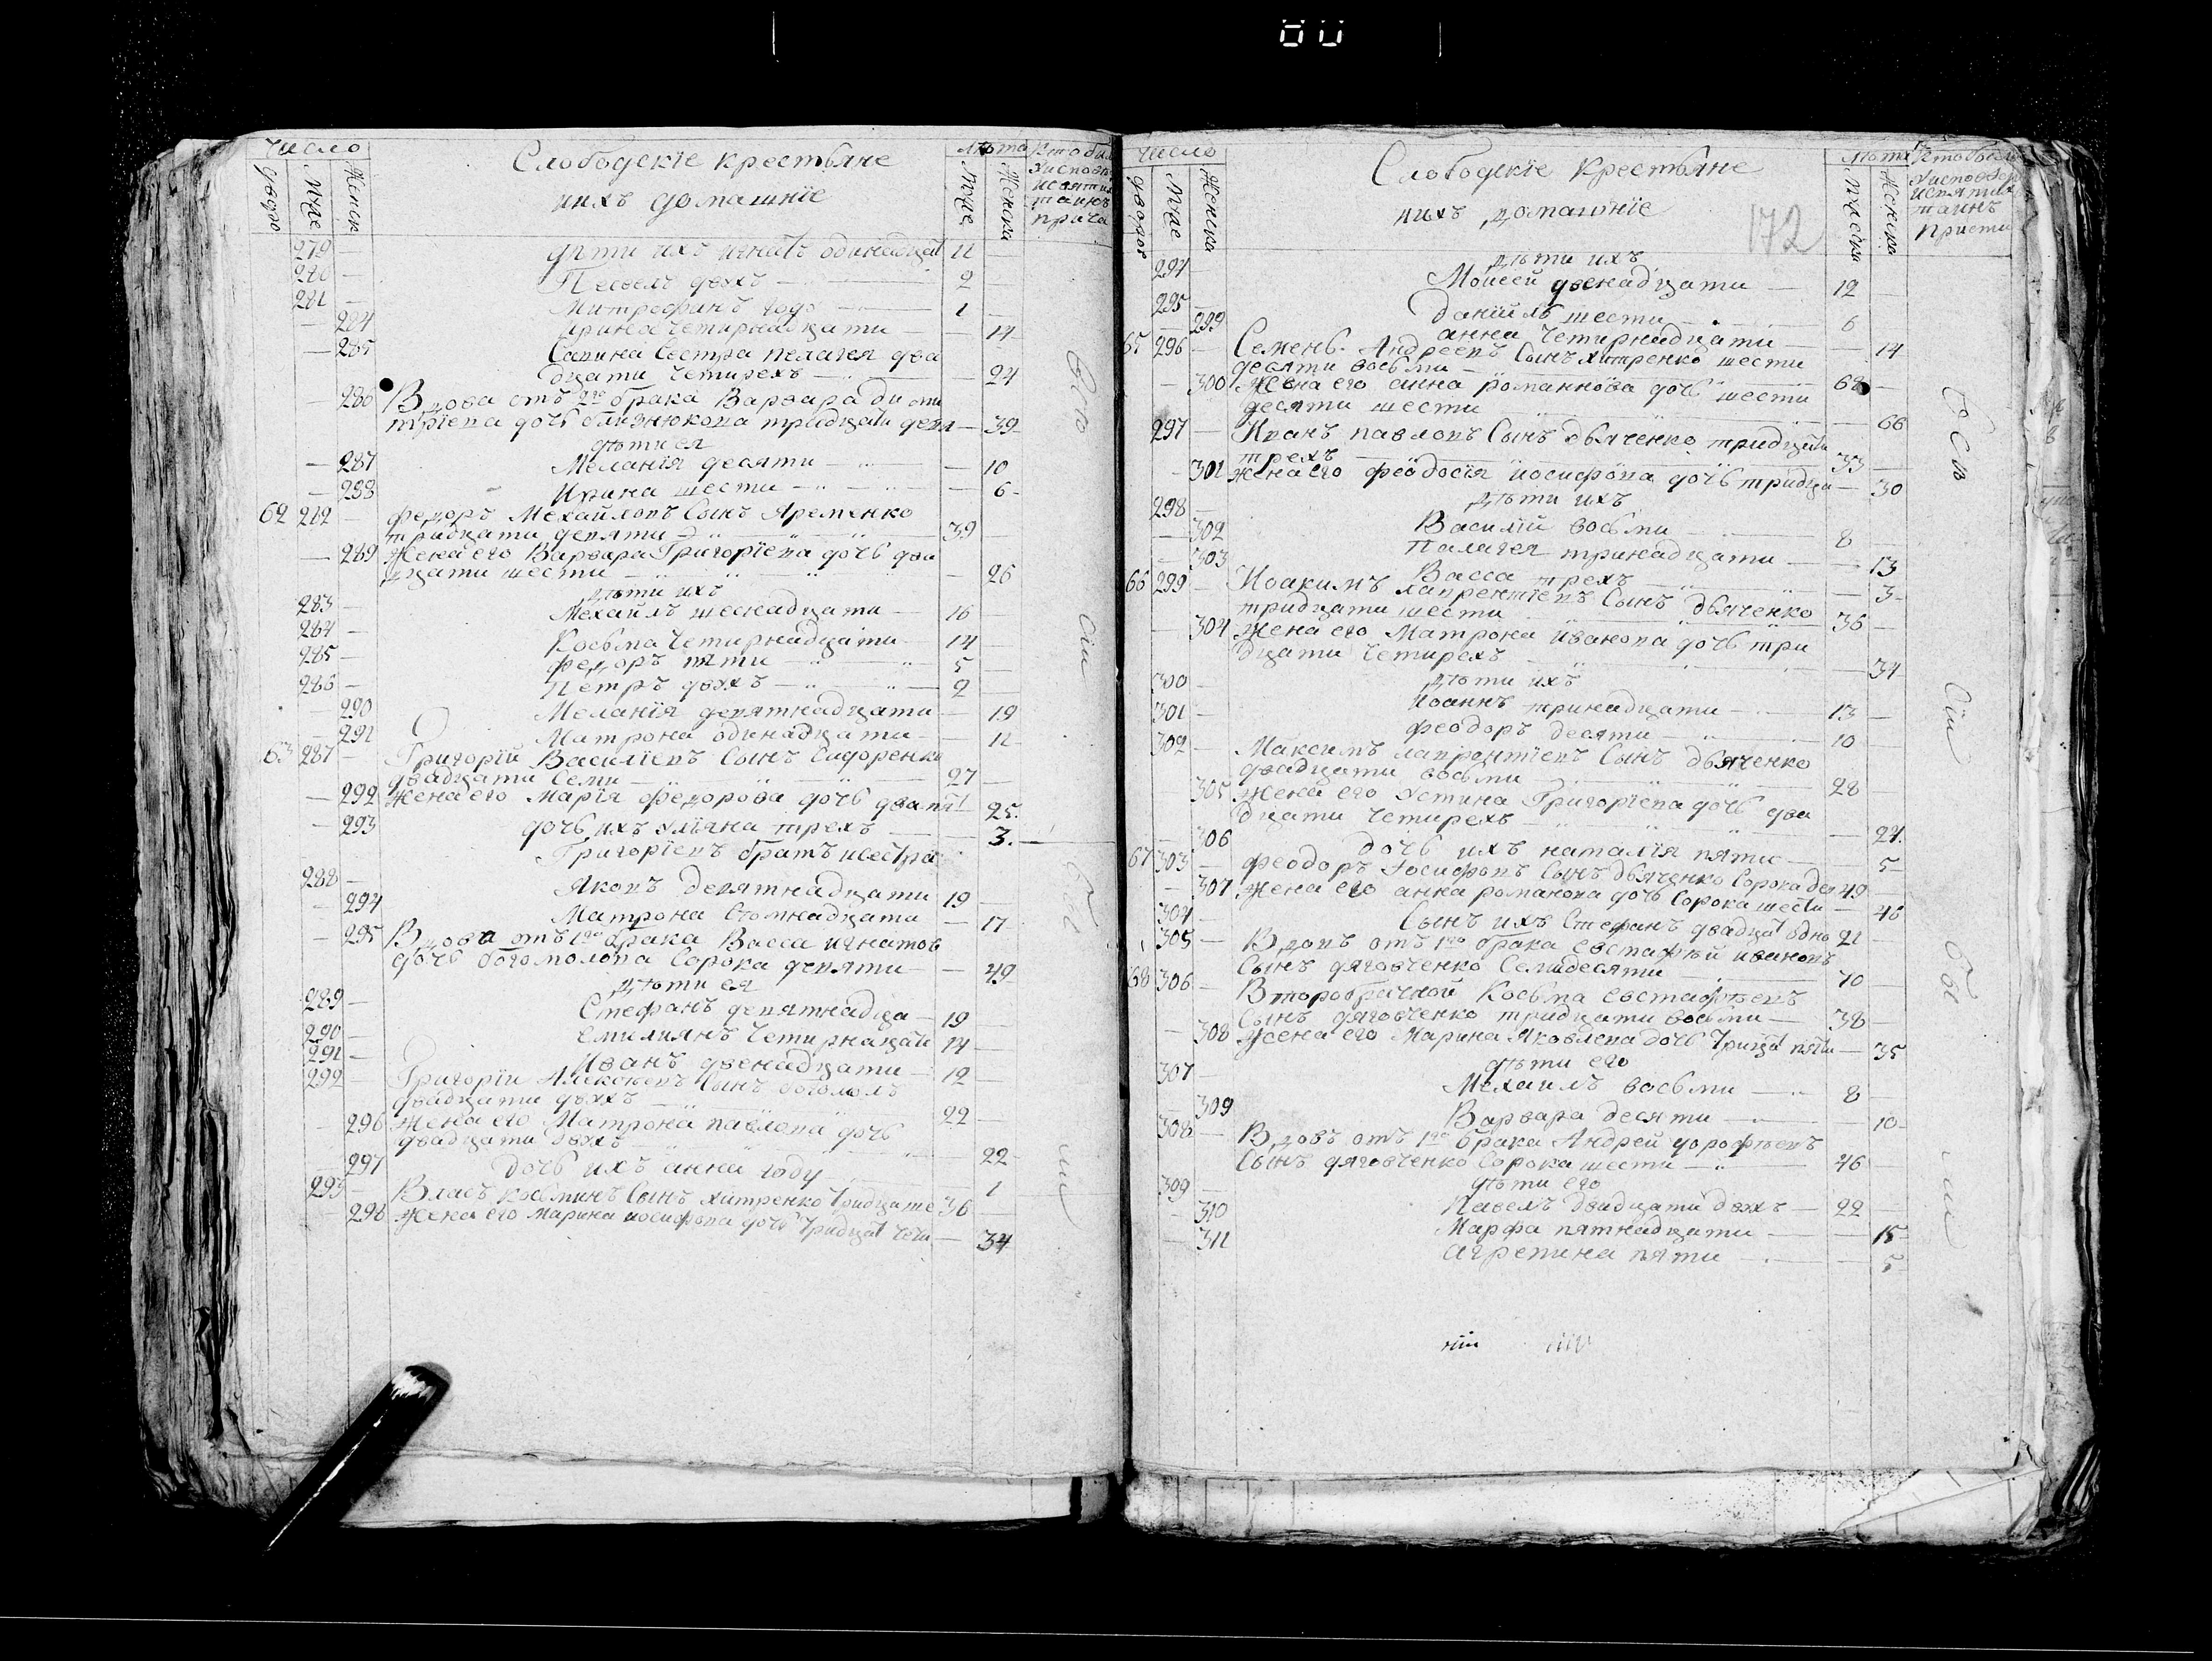 80
Число
Слободскїе крестьяне
лѣта
ихъ домашнїе
279 дѣти ихъ игнатъ одинадцат 11
280 Павелъ двохъ 2
281 Митрофанъ годо 1
284 ирина Четирнадцати 14
285 Сестра пелагея два
дцати Четирехъ 24
286 Вдова отъ 2го брака Варвара ди ми
трїева дочь близнюкова тридцати девя 39
дѣти ея
287 Меланїя десяти 10
288 Ирина шести 6
62 282 Федоръ Мехайловъ Сынъ Яременко
тридцати девяти 39
289 Жена его Варвара Григорїева дочь два
дцати шести 26
дѣти ихъ
283 Мехайлъ шеснадцати 16
284 Косьма Четирнадцати 14
285 Федоръ пяти 5
286 Петръ двохъ 2
290 Меланїя девятнадцати 19
291 Матрона одинадцати 11
63 287 Григорїй Василїевъ Сынъ Сидоренко
двадцати Семи 27
292 Жена его Марїя Федорова дочь два пят 25
293 дочь ихъ Улїяна трехъ 3
Григорїевъ братъ исестра
288 Яковъ Девятнадцати 19
294 Матрона Семнадцати 17
295 Вдова отъ 1го брака Васса игнатов
дочь богомолова Сорока девяти 49
дѣти ея
289 Стефанъ девятнадца 19
290 емилиянъ Четирнацати 14
291 Иванъ двенадцати 12
292 Григорїи Алексѣевъ Сынъ богомолъ
двадцати двохъ 22
296 Жена его Матрона павлова дочь
двадцати двохъ 22
297 дочь ихъ анна году 1
293 Власъ косминъ Сынъ хитренко Тридцат ше 36
298 Жена его марина иосифова дочь Тридцат Чети 34
Число
Слободскїе Крестьяне
лѣта
ихъ домашнїе
172
дѣти ихъ
294 Моисей двенадцати 12
295 Данїилъ шести 6
299 анна Четирнадцати 14
65 296 Семенъ Андреевъ Сынъ хитренко шести
десяти восьми 68
300 Жена его анна романнова дочь шести
десяти шести 66
297 Иванъ павловъ Сынъ дьяченко тридцати
трехъ 33
301 Жена его феодосїя иосифова дочь тридца 30
дѣти ихъ
298 Василїй восьми 8
302 Палагея тринадцати 13
303 Васса трехъ 3
66 299 Иоакимъ лаврентїевъ Сынъ дьяченко
тридцати шести 36
304 Жена его Матрона иванова дочь три
дцати Четирехъ 34
дѣти ихъ
300 Иоаннъ тринадцати 13
301 феодоръ десяти 10
302 Максимъ лаврентїевъ Сынъ дьяченко
двадцати восьми 28
305 Жена его Устина Григорїева дочь два
дцати Четирехъ 24
306 дочь ихъ наталїя пяти 5
67 303 феодоръ Иосифовъ Сынъ дьяченко Сорока дев 49
307 Жена его анна романова дочь Сорока шести 46
304 Сынъ ихъ Стефанъ двадцат одно 21
305 Вдовъ отъ 1го брака евстафѣй ивановъ
Сынъ дяговченко Семидесяти 70
68 306 Второбрачной Косьма евстафѣевъ
Сынъ дяговченко тридцати восьми 38
308 Жена его Марина Яковлева дочь Трицат пяти 35
дѣти его
307 Мехаилъ восьми 8
309 Варвара десяти 10
308 Вдовъ отъ 1го брака Андрей дорофѣевъ
Сынъ дяговченко Сорока шести 46
дѣти его
309 Павелъ двадцати двохъ 22
310 Марфа пятнадцати 15
311 агрепина пяти 5